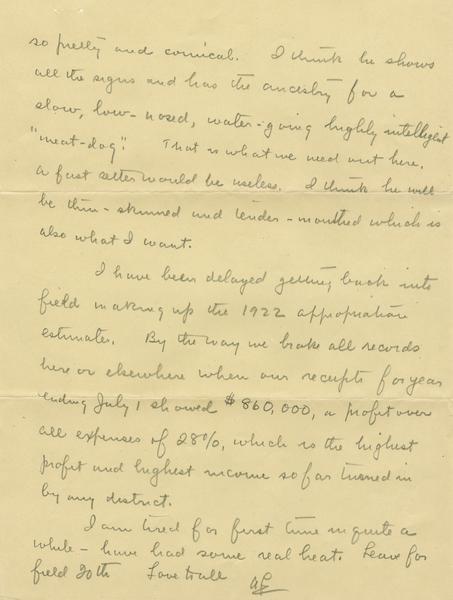 so pretty and comical. I think he shows
all the signs and has the ancestry for a
slow, low-nosed, water-going highly intelligent
"meat-dog". That is what we need out here.
a fast setter would be useless. I think he will
be thin-skinned and tender-mouthed which is
also what I want.
I have been delayed getting back into
field making up the 1922 appropriation
estimates. By the way we broke all records
here or elsewhere when our receipts for year
ending July 1 showed $860,000, a profit over
all expenses of 28%, which is the highest
profit and highest income so far turned in
by any district.
I am tired for first time in quite a
while - have had some real heat. Leave for
field 20th Love to all AL